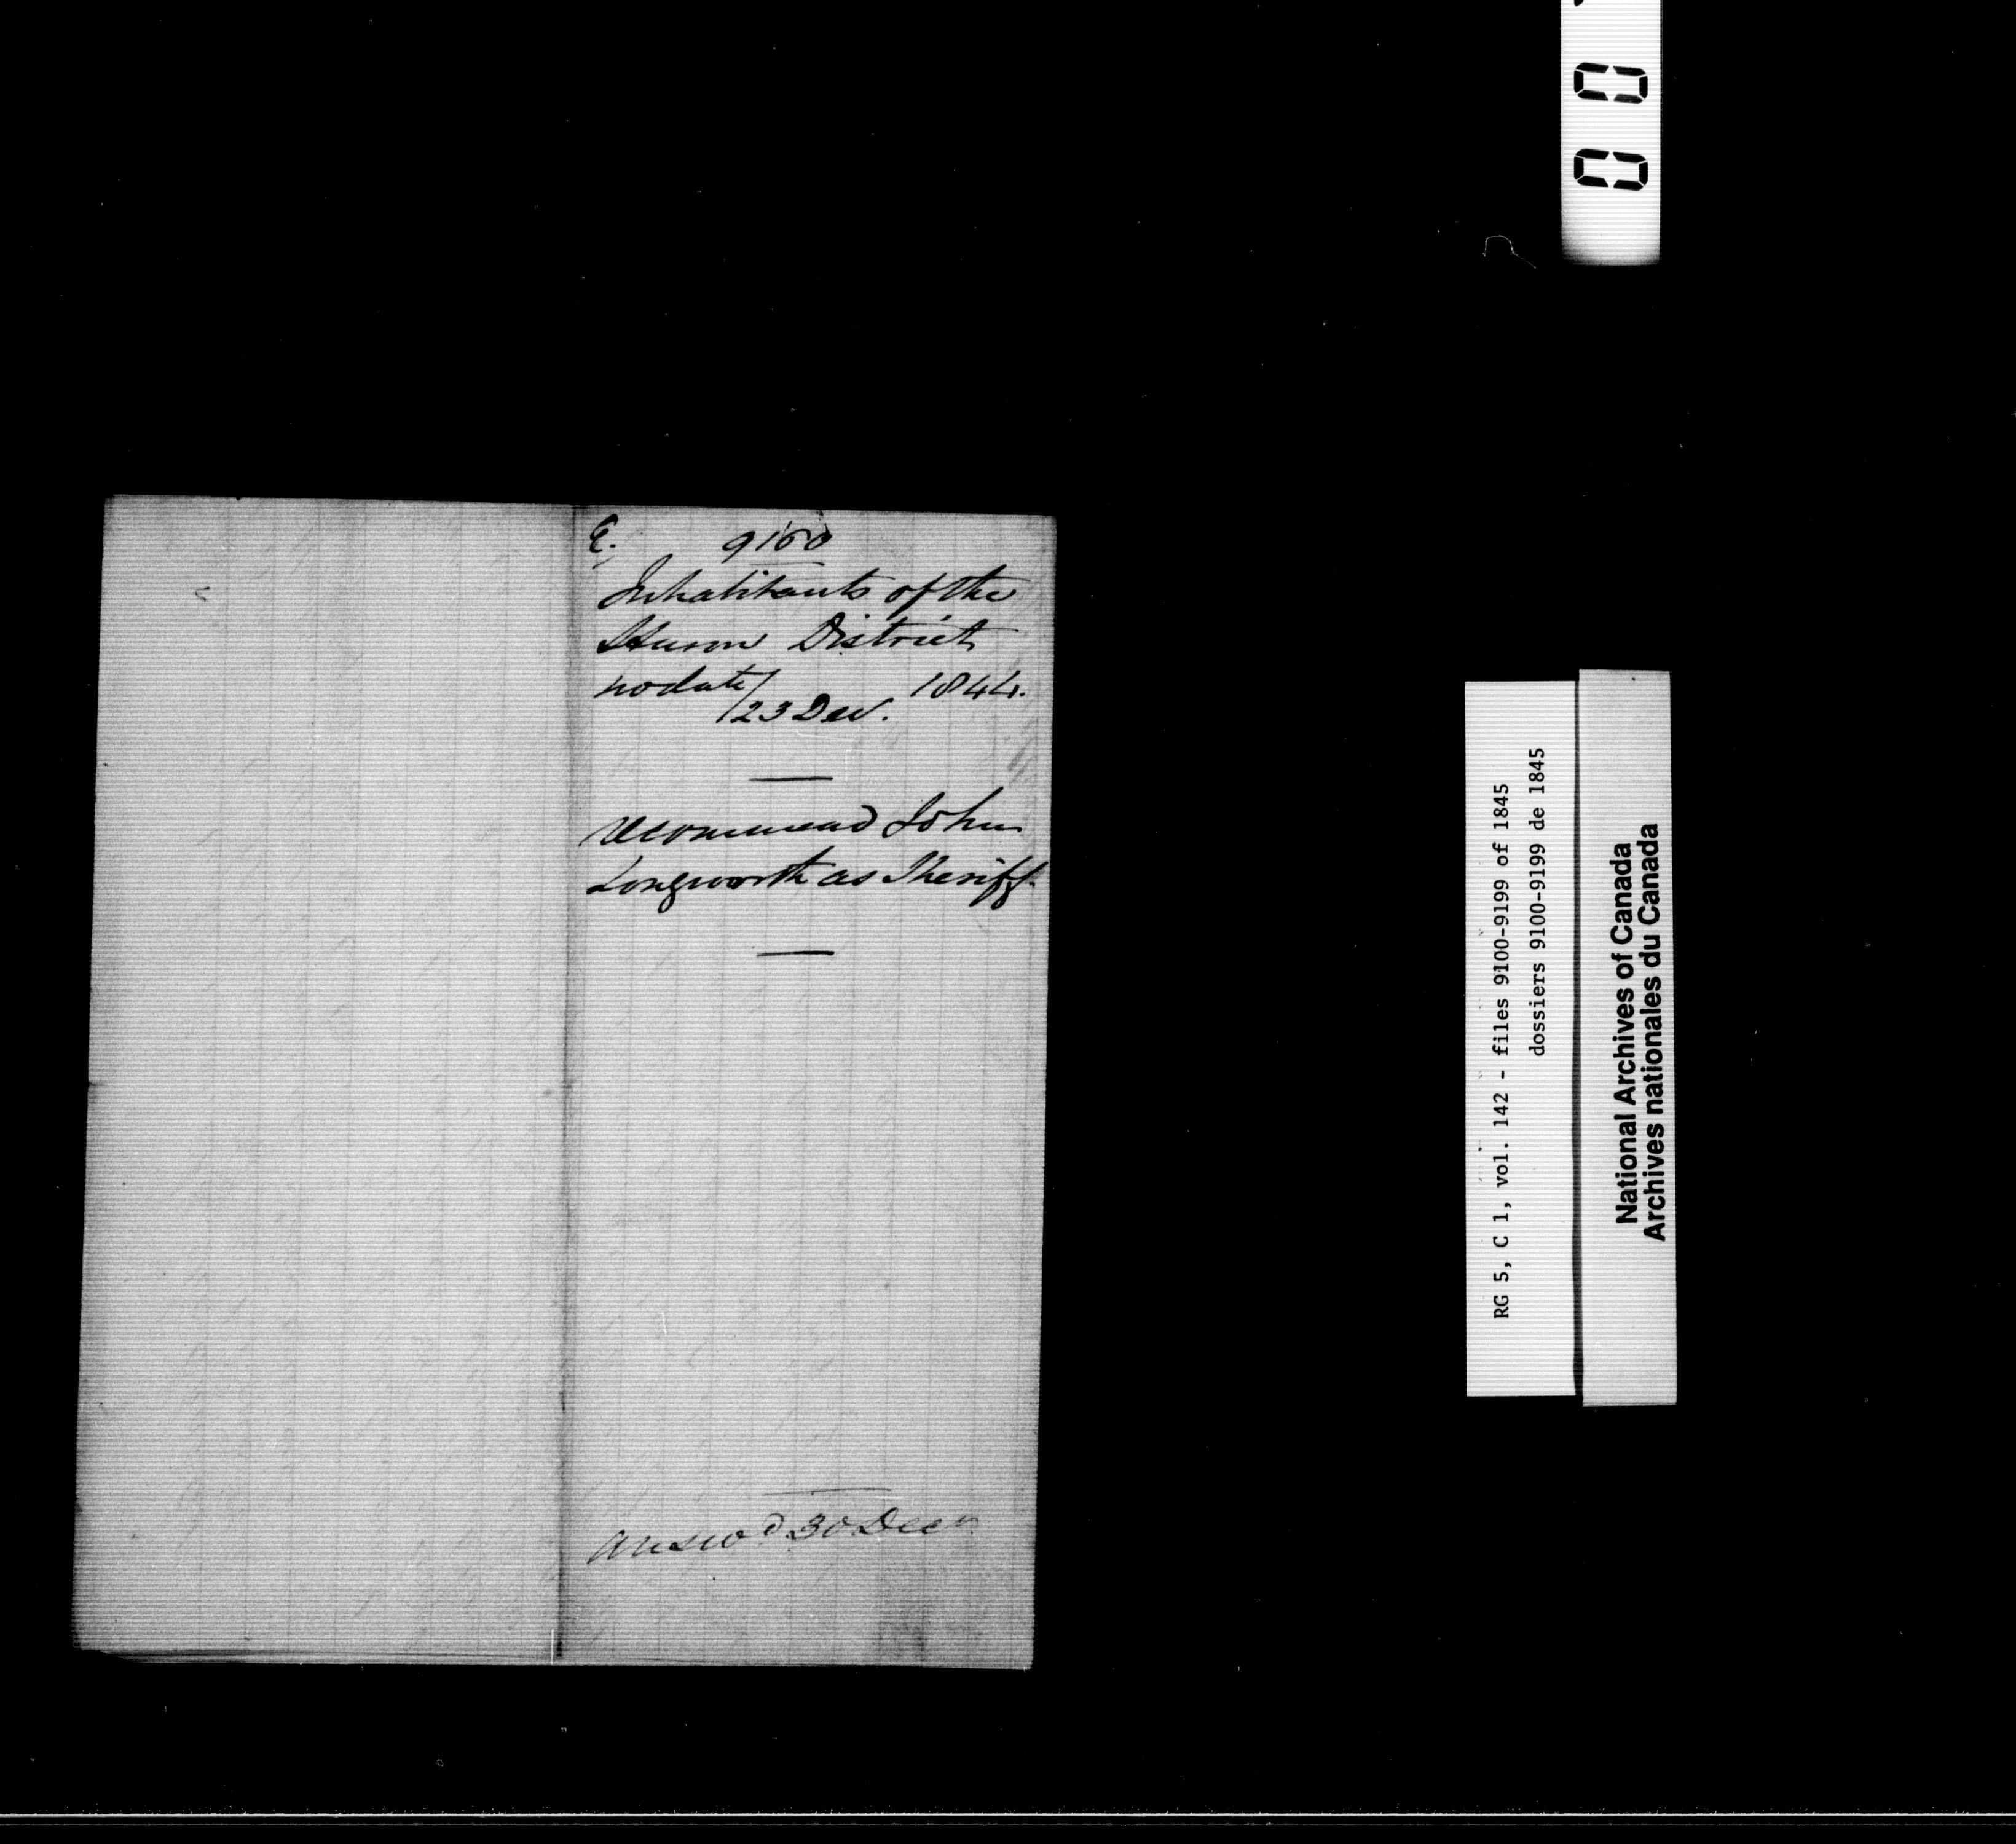 C. 9160
Inhabitants of the
Huron District
no date/ 1844.
/23 Decr.
recommend John
Longworth as Sheriff.
Answd 30 Decr
RG 5, C 1, vol. 142 - files 9100-9199 of 1845
dossiers 9100-9199 de 1845
National Archives of Canada
Archives nationales du Canada
0 0